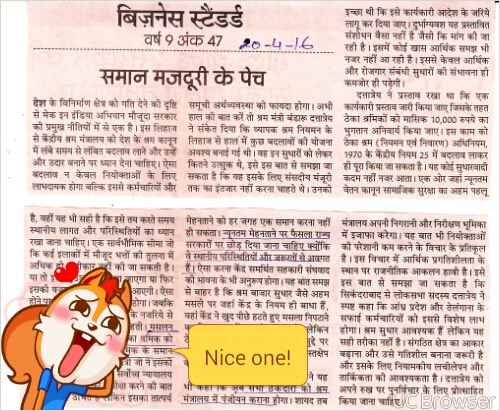 बिज़नेस स्टैंडर्ड
वर्ष 9 अंक 47
20-4-16
समान मजदूरी के पेच
देश के विनिर्माण क्षेत्र को गति देने की दृष्टि
से मेक इन इंडिया अभियान मौजूदा सरकार
की प्रमुख नीतियों में से एक है। इस लिहाज
से केंद्रीय श्रम मंत्रालय को देश के श्रम कानून
में लंबे समय से लंबित बदलाव लाने और उन्हें
और उदार बनाने पर ध्यान देना चाहिए। ऐसा
बदलाव न केवल नियोक्ताओं के लिए
लाभदायक होगा बल्कि इससे कर्मचारियों और
समूची अर्थव्यवस्था को फायदा होगा। अभी
हाल की बात करें तो श्रम मंत्री बंडारू दत्तात्रेय
ने संकेत दिया कि व्यापक श्रम नियमन के
लिहाज से हाल में कुछ बदलावों की योजना
अवश्य बनाई गई थी। वह इन सुधारों को लेकर
कितने उत्सुक थे, इसे इस बात से समझा जा
सकता है कि वह इसके लिए संसदीय मंजूरी
तक का इंतजार नहीं करना चाहते थे। उनकी
इच्छा थी कि इसे कार्यकारी आदेश के जरिये
लागू कर दिया जाए। दुर्भाग्यवश यह प्रस्तावित
संशोधन वैसा नहीं है जैसी कि मांग की जा
रही है। इसमें कोई खास आर्थिक समझ भी
नजर नहीं आ रही है। इससे केवल आर्थिक
और रोजगार संबंधी सुधारों की संभावना ही
कमजोर ही पड़ेगी।
दत्तात्रेय ने प्रस्ताव रखा था कि एक
कार्यकारी प्रस्ताव जारी किया जाए जिसके तहत
ठेका श्रमिकों को मासिक 10,000 रुपये का
भुगतान अनिवार्य किया जाए। इस काम को
ठेका श्रम (नियमन एवं निवारण) अधिनियम,
1970 के केंद्रीय नियम 25 में बदलाव लाकर
ही पूरा किया जा सकता है। यह कोई सुधारवादी
कदम नहीं नजर आता। एक ओर जहां न्यूनतम
वेतन कानून सामाजिक सुरक्षा का अहम पहलू
है, वहीं यह भी सही है कि इसे तय करते समय
स्थानीय लागत और परिस्थितियों का ध्यान
रखा जाना चाहिए। एक सार्वभौमिक सीमा जो
कि कई इलाकों में मौजूद भत्तों की तुलना में
अधिक हो
की जा सकती है।
या तो
जाएगा या फिर
इसका
बढ़ावा देगा। ऐसा
होने पर
होगा। जबकि
के नजरिये से
रहती। मसलन,
का श्रमिक को
के समान
जी ने इसका
सर्वोच्च न्यायालय
करने की बात
लेकिन इसका तात्पर्य
मेहनताने को हर जगह एक समान करना नहीं
हो सकता। न्यूनतम मेहनताने पर फैसला राज्य
सरकारों पर छोड़ दिया जाना चाहिए क्योंकि
वे स्थानीय परिस्थितियों और जरूरतों से अवगत
हैं। ऐसा करना केंद्र समर्थित सहकारी संघवाद
की भावना के भी अनुरूप होगा। यह बात समझ
से बाहर है कि श्रम बाजार सुधार जैसे अहम
मसले पर जहां केंद्र के नियम ही बाधा हैं,
वहां केंद्र ने खुद पीछे हटते हुए मसला निपटाने
भी कहा कि अब सभी ठेकेदारों को श्रम
मंत्रालय में पंजीयन कराना होगा। शायद तब
मंत्रालय अपनी निगरानी और निरीक्षण भूमिका
में इजाफा करेगा। यह बात भी नियोक्ताओं
की परेशानी कम करने के विचार के प्रतिकूल
है। इस विचार में आर्थिक प्रगतिशीलता के
स्थान पर राजनीतिक आकलन हावी है। इसे
इस बात से समझा जा सकता है कि
सिकंदराबाद से लोकसभा सदस्य दत्तात्रेय ने
स्पष्ट कहा कि आंध्र प्रदेश और तेलंगाना के
सफाई कर्मचारियों को इससे विशेष लाभ
होगा। श्रम सुधार आवश्यक हैं लेकिन यह
सही तरीका नहीं है। संगठित क्षेत्र का आकार
बढ़ाना और उसे गतिशील बनाना जरूरी है
और इसके लिए नियामकीय लचीलेपन और
तार्किकता की आवश्यकता है। दत्तात्रेय को
अपने रुख पर पुनर्विचार के लिए प्रोत्साहित
किया जाना चाहिए।
Nice one!
UC Browser